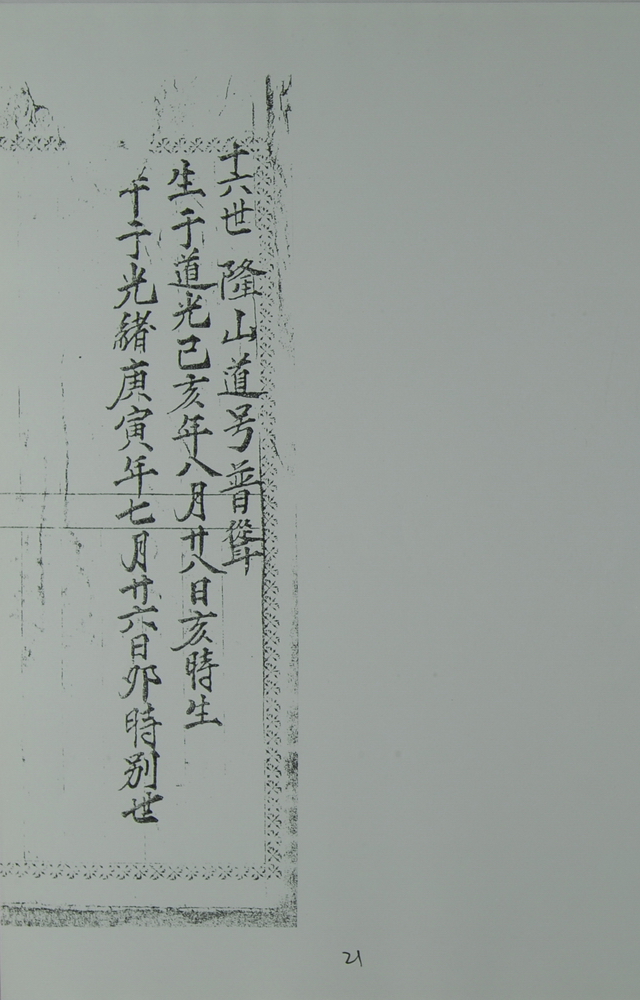 十六世 隆山道号普聳
生于道光己亥年八月廿八日亥時生
卒于光緒庚寅年七月廿六日卯時別世
21